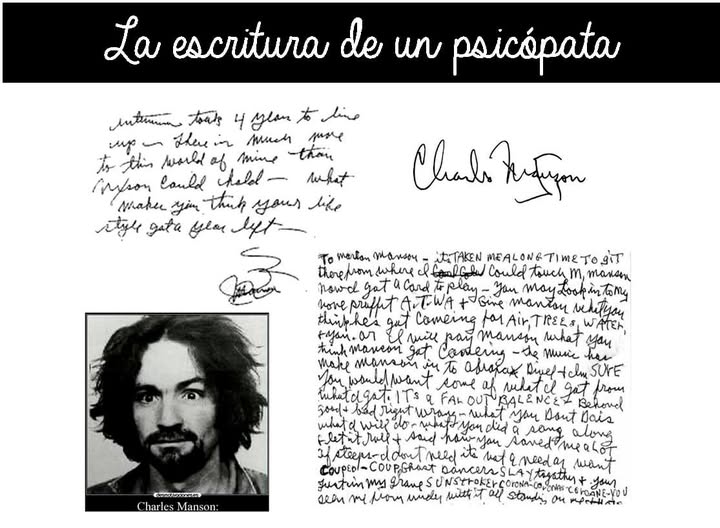 La escritura de un psicópata
interview took 4 years to line
up – There is much more
to this world of mine than
could hold – what
makes you think yours life
style got a year left –
Charles Manson
Manson
To marlon manson – its TAKEN ME A LONG TIME TO GIT
there from where I could touch M, manson
now I got a card to play – you may Look in to my
non proffit A.T.W.A + Give manson what you
think he's got comeing for Air, TREES, WATER,
+ you. or I will pay manson what you
think manson got comeing – the music has
make manson in to Devel + Im SURE
You would want some of what I got from
what I got. ITS A FAR OUT BALENCE + Behond
good + bad right wrong – what you Dont Do is
what I will do – what you did a song along
+ let it roll + said how you saved me a lot
of steeps – I dont need its not a need or want
COUPED – COUP, GHOST DANCERS SLAY together + your
just in my grave SUNSTROKER CORONA-CORONAS-COROANE-YOU
seen me from under with it all standing on
Charles Manson: